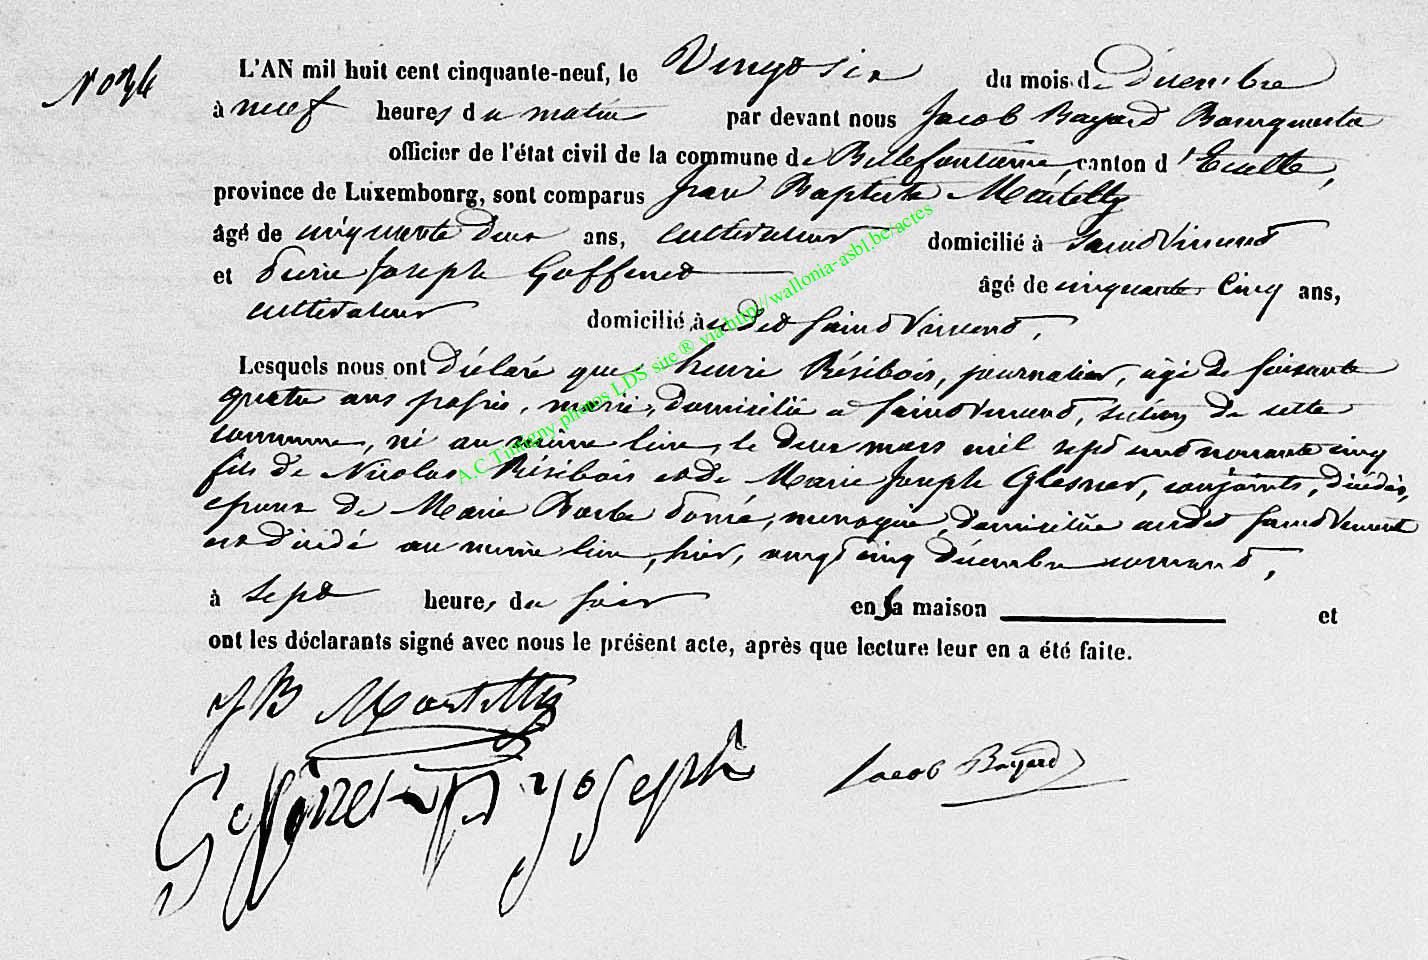 No 36
L'AN mil huit cent cinquante-neuf, le Vingt six du mois de décembre
à neuf heures du matin par devant nous Jacob Bayard Bourgmestre
officier de l'état civil de la commune de Bellefontaine, canton d'Etalle,
province de Luxembourg, sont comparus Jean Baptiste Martilly
âgé de cinquante deux ans, cultivateur domicilié à Saint Vincent
et Pierre Joseph Goffinet âgé de cinquante cinq ans,
cultivateur domicilié audit Saint Vincent,
Lesquels nous ont déclaré que henri Résibois, journalier, âgé de soixante
quatre ans passés, marié, domicilié à Saint Vincent, section de cette
commune, né au même lieu, le deux mars mil sept cent nonante cinq
fils de Nicolas Résibois et de Marie Joseph Glesner, conjoints, décédés,
époux de Marie Barbe ménagère, domiciliée audit Saint Vincent
est décédé au même lieu, hier, vingt cinq décembre courant,
à sept heures du soir en sa maison et
ont les déclarants signé avec nous le présent acte, après que lecture leur en a été faite.
JB Martilly
Goffinet P Joseph
Jacob Bayard
A.C Tintigny photos LDS site ® via http://wallonia-asbl.be/actes